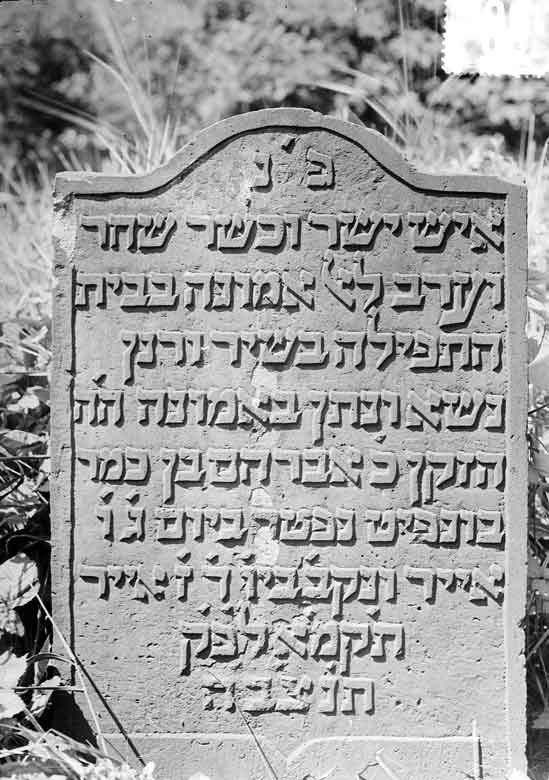 פ'נ
איש ישר וכשר שחר
וערב לא אמונה בבית
התפילה בשיר ורנן
נשא ונתן באמונה ה'ה
הזקן כ' אברהם בן כמר
בונפיט נפטר ביום ג' ו'
אייר ונקב'ביו' ד' ז' אייר
תקמ'א'לפק
תנצבה